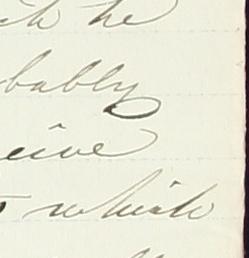 he
bably
eive
which